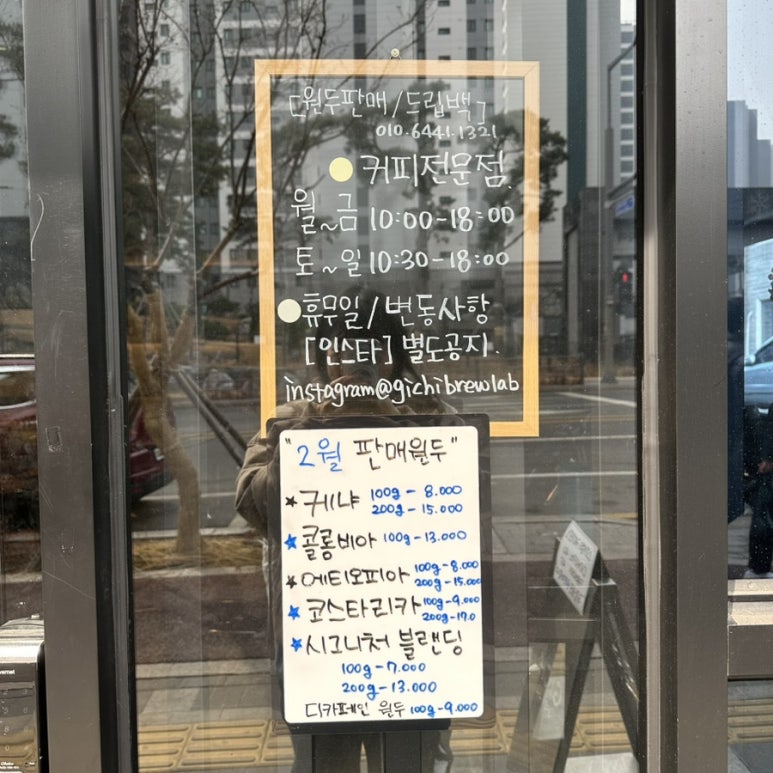 [원두판매/드립백]
010.6441.1321
커피전문점.
월~금 10:00-18:00
토~일 10:30-18:00
휴무일/변동사항
[인스타] 별도공지.
instagram@gichibrewlab
"2월 판매원두"
★케냐 100g - 8.000
200g - 15.000
★콜롬비아 100g - 13.000
★에티오피아 100g - 8.000
200g - 15.000
★코스타리카 100g - 9.000
200g - 17.0
★시그니처 블랜딩
100g - 7.000
200g - 13.000
디카페인 원두 100g - 9.000